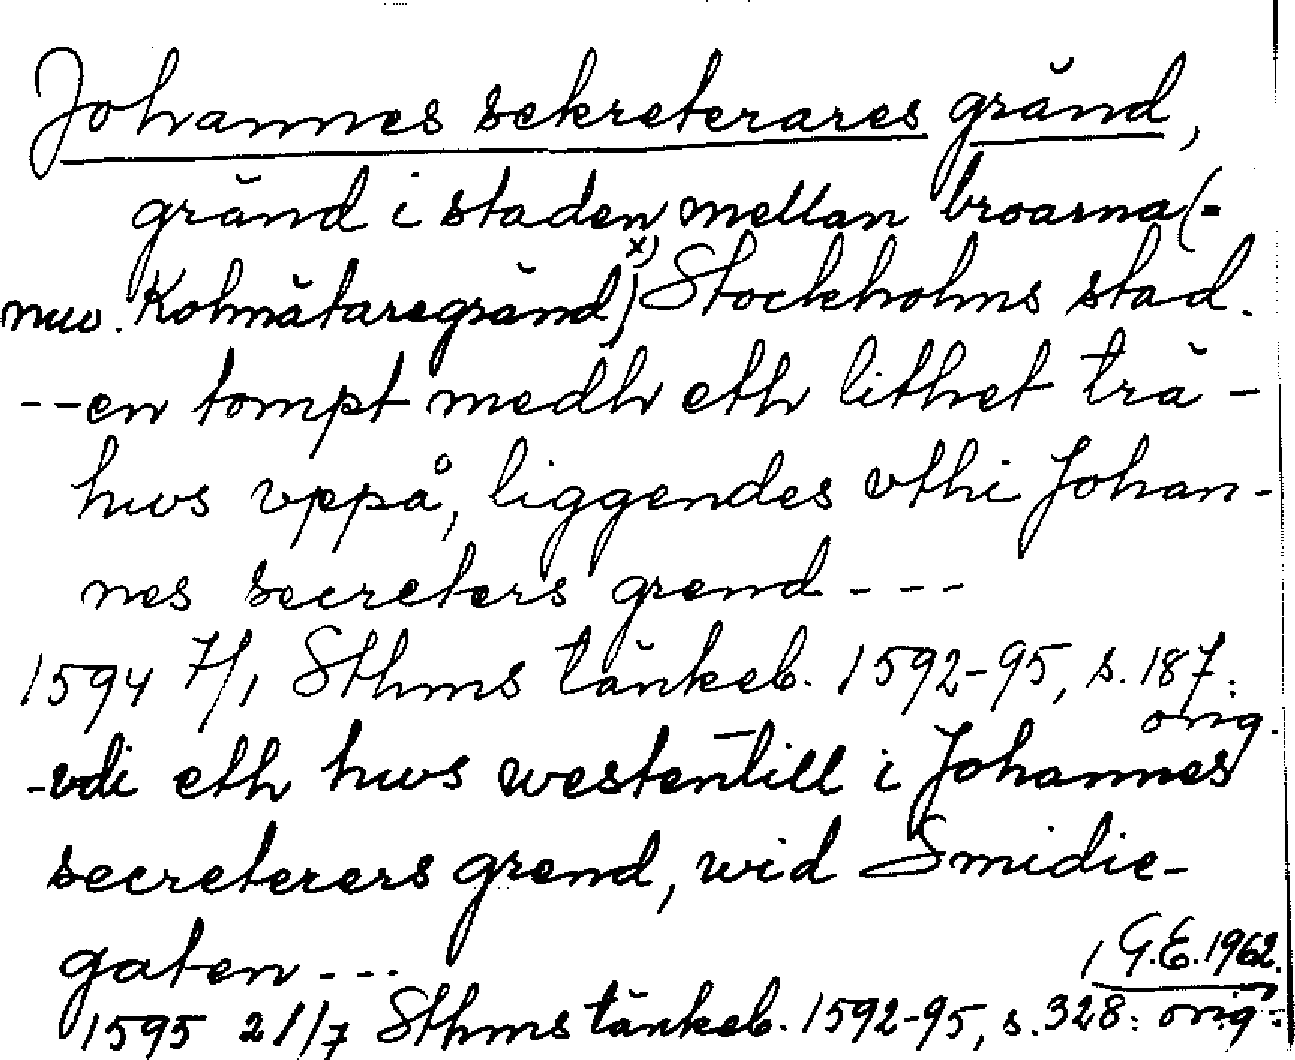 Johannes sekreterares gränd,
gränd i staden mellan broarna (=
nuv. Kolmätaregränd)x) Stockholms stad.
--en tompt medh eth lithet trä-
hws vppå, liggendes vthi Johan-
nes secreters grend ---
1594 7/1 Sthms tänkeb. 1592-95, s. 187: orig.
-vdi eth hws westentill i Johannes
secreterers grend, wid Smidie-
gaten ---
G.E. 1962.
1595 21/7 Sthms tänkeb. 1592-95, s. 328: orig: